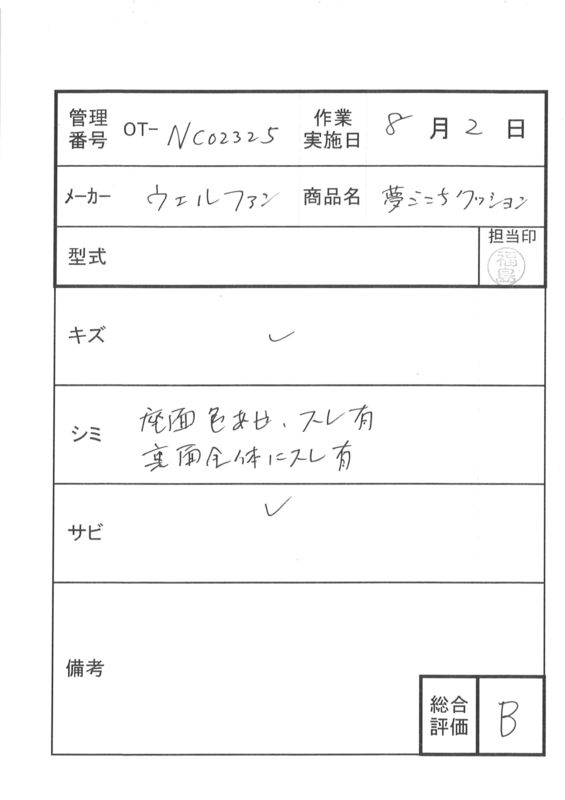 管理番号 OT- NC02325 作業実施日 8月2日
メーカー ウェルファン 商品名 夢ごこちクッション
型式 担当印 福島
キズ ✓
シミ 座面色あせ、スレ有
裏面全体にスレ有
サビ ✓
備考
総合評価 B